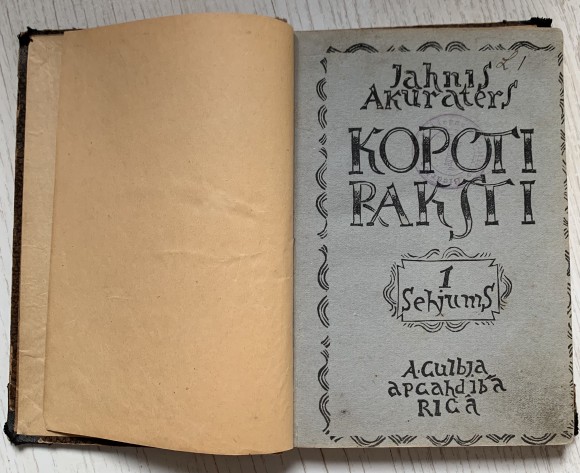 Jahnis
Akuraters
KOPOTI
RAKSTI
1
Sehjums
A. Gulbja
apgahdibā
RIGĀ